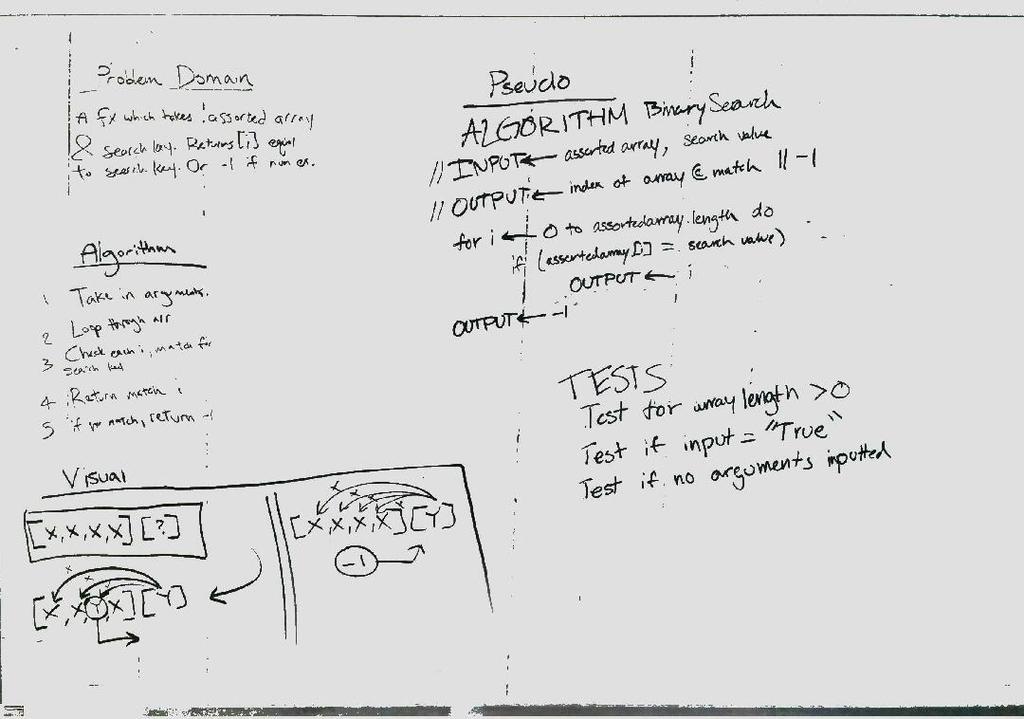 Problem Domain
A fx which takes assorted array
& search key. Returns [i] equal
to search key. Or -1 if non ex.
Algorithm
1 Take in arguments.
2 Loop through arr
3 Check each i, match for
search key
4 Return match i
5 if no match, return -1
Visual
[X,X,X,X] [?]
x x
[X,X,Y,X] [Y]
x
[X,X,X,X] [Y]
-1
Pseudo
ALGORITHM Binary Search
// INPUT ← assorted array, search value
// OUTPUT ← index of array @ match || -1
for i ← 0 to assortedarray.length do
if (assortedarray[i] = search value)
OUTPUT ← i
OUTPUT ← -1
TESTS
Test for array length >0
Test if input = "True"
Test if no arguments inputted